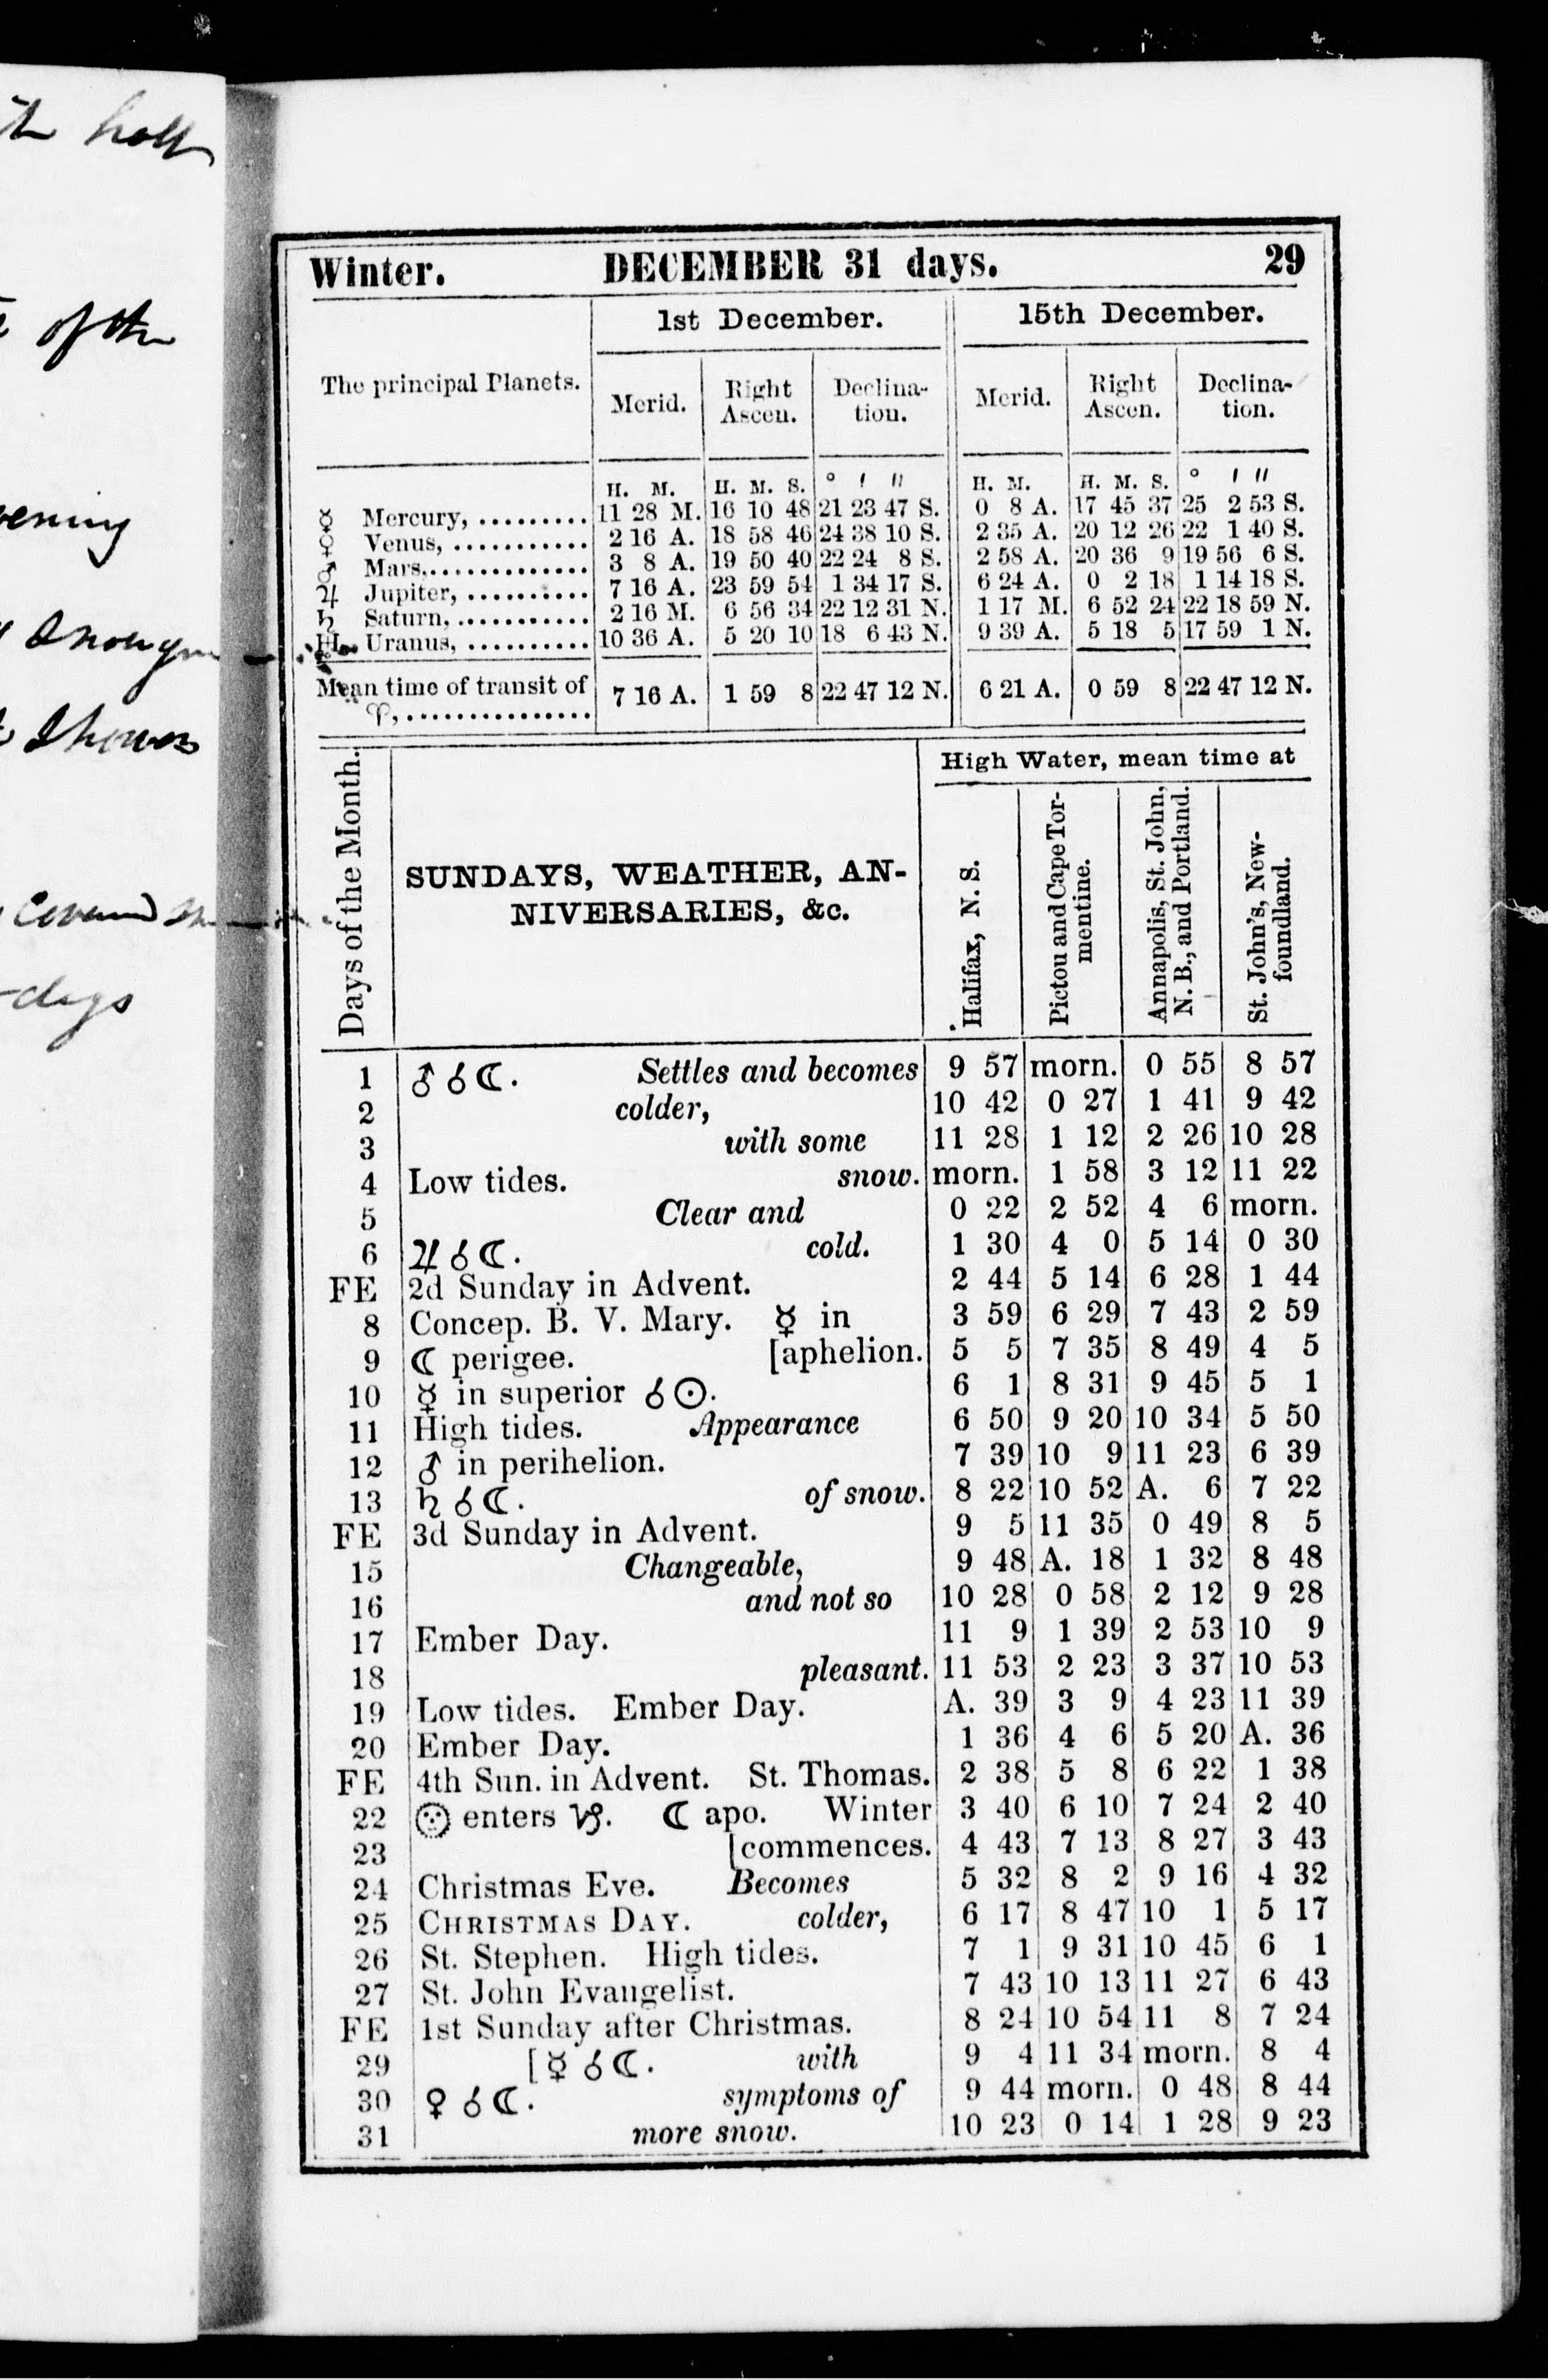 th half
of the
vening
showers
covered
days
Winter. DECEMBER 31 days. 29
The principal Planets. 1st December. 15th December.
Merid. Right Ascen. Declina-tion. Merid. Right Ascen. Declina-tion.
H. M. H. M. S. ° ′ ″ H. M. H. M. S. ° ′ ″
☿ Mercury, ......... 11 28 M. 16 10 48 21 23 47 S. 0 8 A. 17 45 37 25 2 53 S.
♀ Venus, ........... 2 16 A. 18 58 46 24 38 10 S. 2 35 A. 20 12 26 22 1 40 S.
♂ Mars.............. 3 8 A. 19 50 40 22 24 8 S. 2 58 A. 20 36 9 19 56 6 S.
♃ Jupiter, .......... 7 16 A. 23 59 54 1 34 17 S. 6 24 A. 0 2 18 1 14 18 S.
♄ Saturn, ........... 2 16 M. 6 56 34 22 12 31 N. 1 17 M. 6 52 24 22 18 59 N.
♅ Uranus, .......... 10 36 A. 5 20 10 18 6 43 N. 9 39 A. 5 18 5 17 59 1 N.
Mean time of transit of
♈, ............... 7 16 A. 1 59 8 22 47 12 N. 6 21 A. 0 59 8 22 47 12 N.
Days of the Month.
SUNDAYS, WEATHER, AN-
NIVERSARIES, &c.
High Water, mean time at
Halifax, N. S.
Pictou and Cape Tor-
mentine.
Annapolis, St. John,
N. B., and Portland.
St. John's, New-
foundland.
1 ♂ ☌ ☾. Settles and becomes 9 57 morn. 0 55 8 57
2 colder, 10 42 0 27 1 41 9 42
3 with some 11 28 1 12 2 26 10 28
4 Low tides. snow. morn. 1 58 3 12 11 22
5 Clear and 0 22 2 52 4 6 morn.
6 ♃ ☌ ☾. cold. 1 30 4 0 5 14 0 30
FE 2d Sunday in Advent. 2 44 5 14 6 28 1 44
8 Concep. B. V. Mary. ☿ in 3 59 6 29 7 43 2 59
9 ☾ perigee. [aphelion. 5 5 7 35 8 49 4 5
10 ☿ in superior ☌ ☉. 6 1 8 31 9 45 5 1
11 High tides. Appearance 6 50 9 20 10 34 5 50
12 ♂ in perihelion. 7 39 10 9 11 23 6 39
13 ♄ ☌ ☾. of snow. 8 22 10 52 A. 6 7 22
FE 3d Sunday in Advent. 9 5 11 35 0 49 8 5
15 Changeable, 9 48 A. 18 1 32 8 48
16 and not so 10 28 0 58 2 12 9 28
17 Ember Day. 11 9 1 39 2 53 10 9
18 pleasant. 11 53 2 23 3 37 10 53
19 Low tides. Ember Day. A. 39 3 9 4 23 11 39
20 Ember Day. 1 36 4 6 5 20 A. 36
FE 4th Sun. in Advent. St. Thomas. 2 38 5 8 6 22 1 38
22 ☉ enters ♑. ☾ apo. Winter 3 40 6 10 7 24 2 40
23 [commences. 4 43 7 13 8 27 3 43
24 Christmas Eve. Becomes 5 32 8 2 9 16 4 32
25 CHRISTMAS DAY. colder, 6 17 8 47 10 1 5 17
26 St. Stephen. High tides. 7 1 9 31 10 45 6 1
27 St. John Evangelist. 7 43 10 13 11 27 6 43
FE 1st Sunday after Christmas. 8 24 10 54 11 8 7 24
29 [☿ ☌ ☾. with 9 4 11 34 morn. 8 4
30 ♀ ☌ ☾. symptoms of 9 44 morn. 0 48 8 44
31 more snow. 10 23 0 14 1 28 9 23